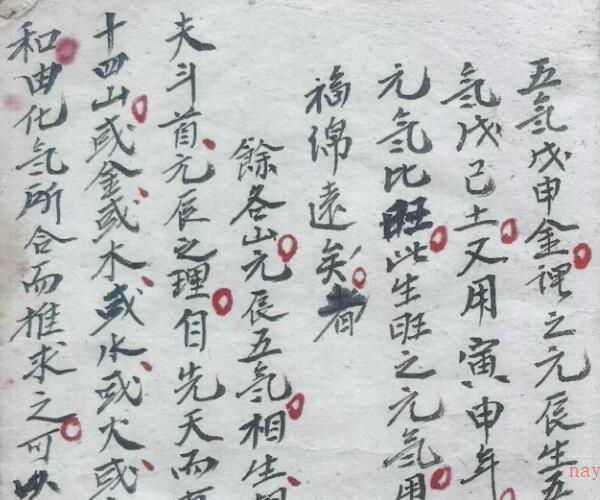 五氣戊申金謂之元辰生五
氣戊己土又用寅申年
元氣比旺此生旺之元氣用
福綿遠矣者
餘各山元辰五氣相生
夫斗首元辰之理自先天而
十四山或金或木或水或火或
和由化氣所合而推求之可
nay